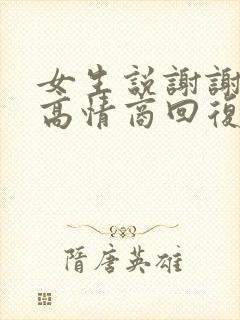 女生説謝謝
高情商回復
隋唐英雄